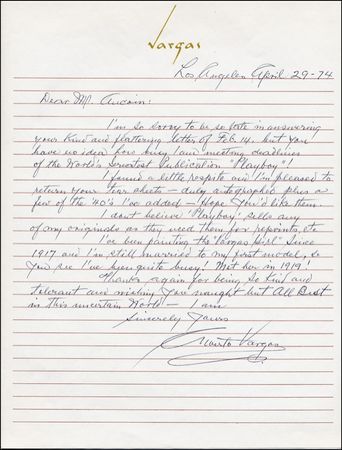 Vargas
Los Angeles April 29-74
Dear Mr. Aucoin:
I'm so sorry to be so late in answering
your kind and flattering letter of Feb. 14. but you
have no idea how busy I am meeting deadlines
of the World's Greatest Publication "Playboy"!
I found a little respite and I'm pleased to
return your tear sheets - duly autographed plus a
few of the '40's I've added - Hope you'd like them.
I don't believe 'Playboy' sells any
of my originals as they need them for reprints, etc
I've been painting the Vargas Girl' since
1917 and I'm still married to my first model, so
you see I've been quite busy! Met her in 1919!
Thanks again for being so kind and
tolerant and wishing you naught but All Best
in this uncertain World - I am
Sincerely Yours
Alberto Vargas